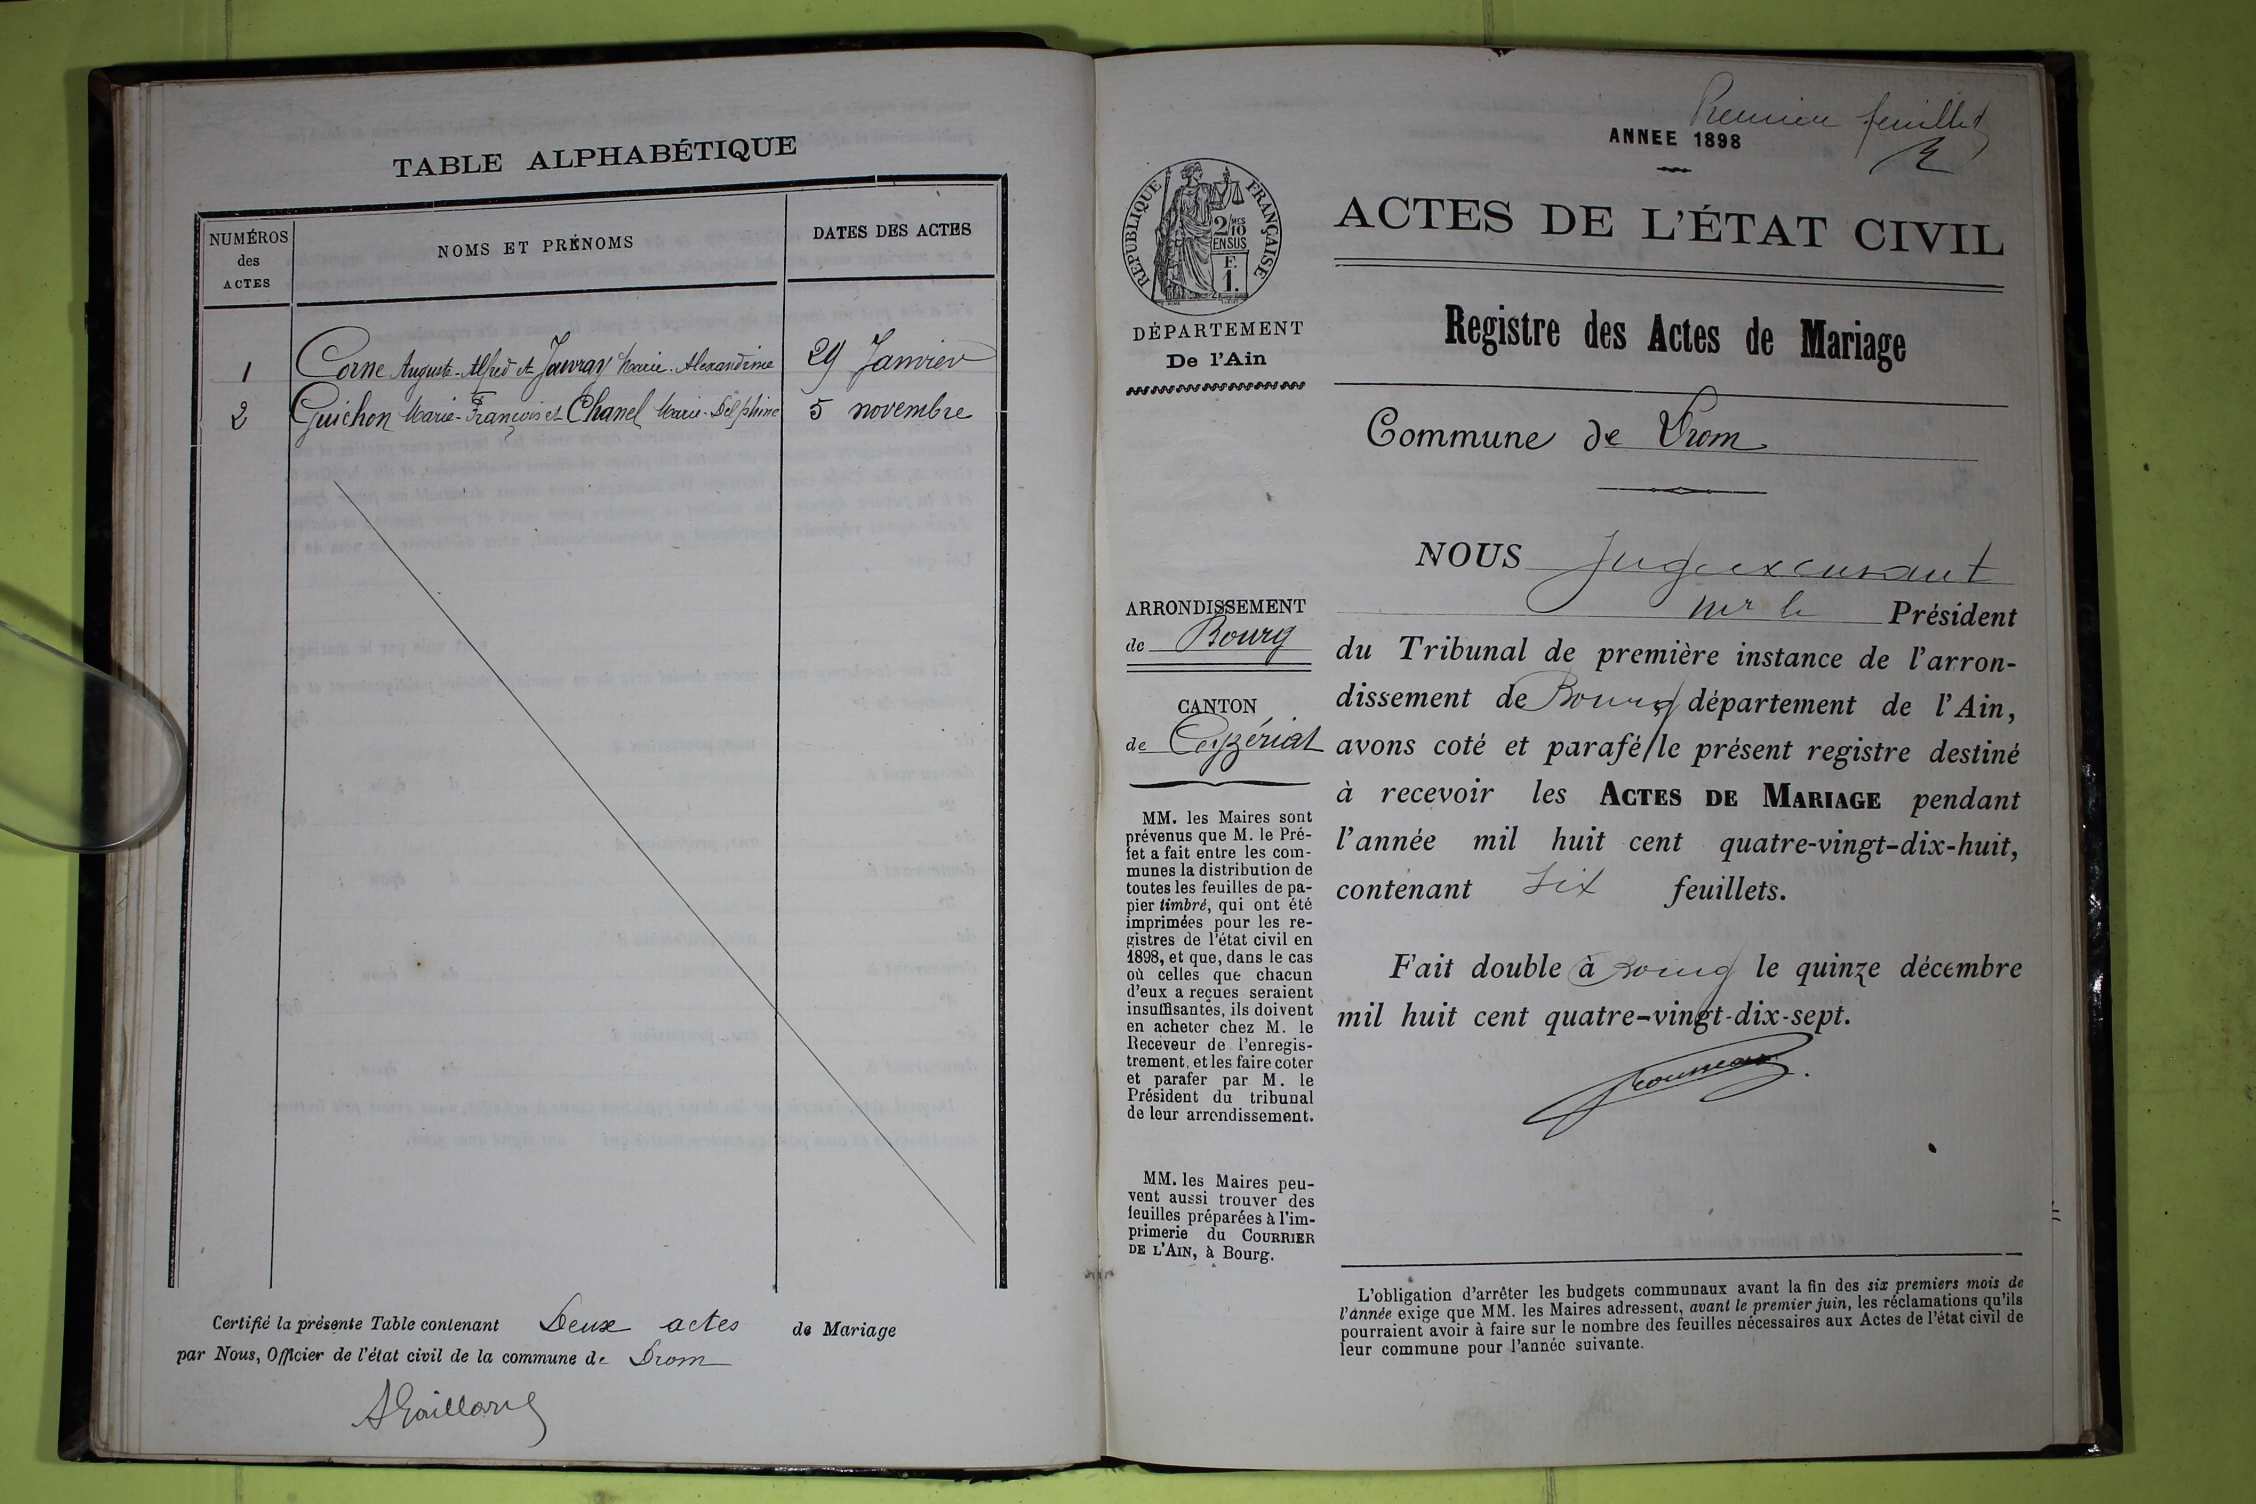 TABLE ALPHABÉTIQUE
NUMÉROS
des
ACTES
NOMS ET PRÉNOMS
DATES DES ACTES
1 Corne Auguste-Alfred et Jauvray Marie-Alexandrine 29 Janvier
2 Guichon Marie-François et Chanel Marie-Delphine 5 novembre
Certifié la présente Table contenant Deux actes de Mariage
par Nous, Officier de l'état civil de la commune de Drom
AGaillard
Premier feuillet
ANNEE 1898
RÉPUBLIQUE FRANÇAISE
2/10
EN SUS
F.
1.
DÉPARTEMENT
De l'Ain
ARRONDISSEMENT
de Bourg
CANTON
de Ceyzériat
MM. les Maires sont
prévenus que M. le Pré-
fet a fait entre les com-
munes la distribution de
toutes les feuilles de pa-
pier timbré, qui ont été
imprimées pour les re-
gistres de l'état civil en
1898, et que, dans le cas
où celles que chacun
d'eux a reçues seraient
insuffisantes, ils doivent
en acheter chez M. le
Receveur de l'enregis-
trement, et les faire coter
et parafer par M. le
Président du tribunal
de leur arrondissement.
MM. les Maires peu-
vent aussi trouver des
feuilles préparées à l'im-
primerie du COURRIER
DE L'AIN, à Bourg.
ACTES DE L'ÉTAT CIVIL
Registre des Actes de Mariage
Commune de Drom
NOUS Juge excusant
Mr le Président
du Tribunal de première instance de l'arron-
dissement de Bourg département de l'Ain,
avons coté et parafé le présent registre destiné
à recevoir les ACTES DE MARIAGE pendant
l'année mil huit cent quatre-vingt-dix-huit,
contenant six feuillets.
Fait double à Bourg le quinze décembre
mil huit cent quatre-vingt-dix-sept.
L'obligation d'arrêter les budgets communaux avant la fin des six premiers mois de
l'année exige que MM. les Maires adressent, avant le premier juin, les réclamations qu'ils
pourraient avoir à faire sur le nombre des feuilles nécessaires aux Actes de l'état civil de
leur commune pour l'année suivante.